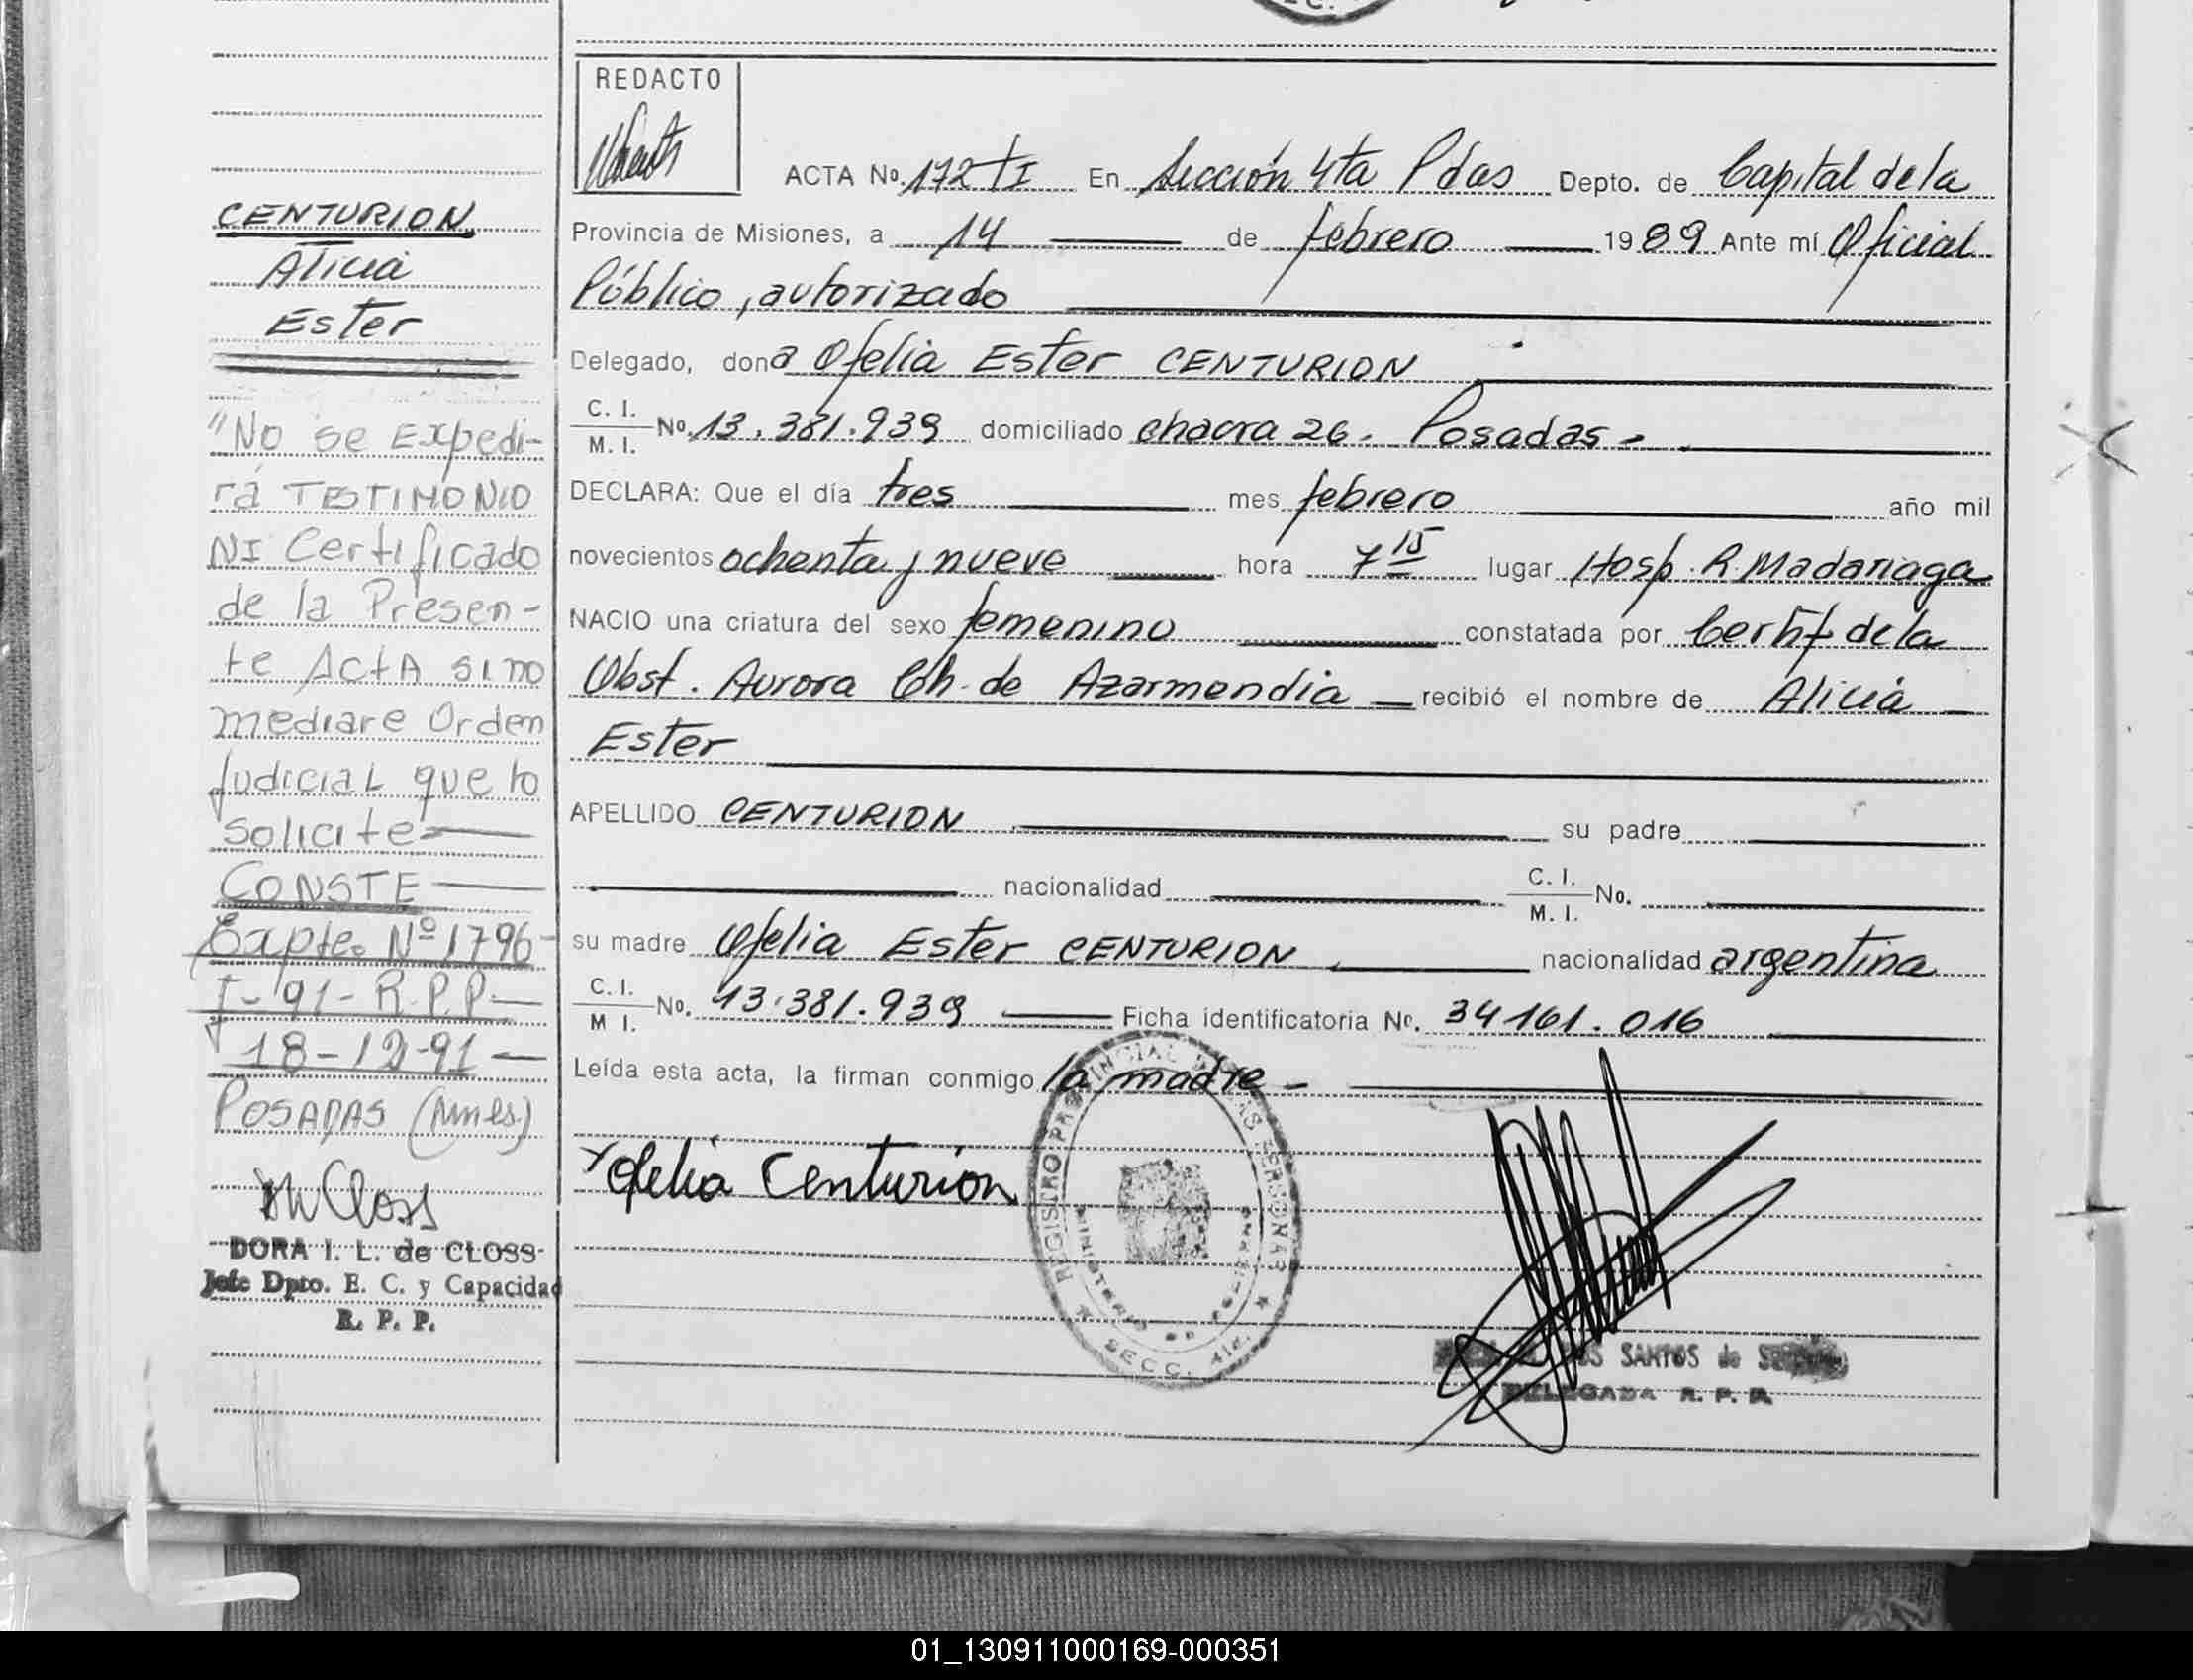 REDACTO
CENTURION
Alicia
Ester
"No se Expedi-
rá TESTIMONIO
NI Certificado
de la Presen-
te ActA sino
mediare Orden
Judicial que lo
solicite=
CONSTE
Expte. Nº 1796-
I-91-R.P.P.
18-12-91
POSADAS (Mnes.)
DORA I. L. de CLOSS
Jefe Dpto. E. C. y Capacidad
R. P. P.
ACTA No. 172 tI En Sección 4ta Pdas Depto. de Capital de la
Provincia de Misiones, a 14 de febrero 1989 Ante mí Oficial
Público, autorizado
Delegado, dona Ofelia Ester CENTURION
C. I.
M. I. No. 13.381.939 domiciliado chacra 26. Posadas-
DECLARA: Que el día tres mes febrero año mil
novecientos ochenta y nueve hora 7 15 lugar Hosp. R. Madariaga
NACIO una criatura del sexo femenino constatada por Certif de la
Obst. Aurora Ch. de Azarmendia recibió el nombre de Alicia
Ester
APELLIDO CENTURION su padre
nacionalidad C. I. M. I. No.
su madre Ofelia Ester CENTURION nacionalidad argentina
C. I.
M I. No. 13.381.939 Ficha identificatoria No. 34161.016
Leída esta acta, la firman conmigo la madre-
Ofelia Centurion
REGISTRO PROVINCIAL DE LAS PERSONAS
MINISTERIO DE GOBIERNO
SECC. 4ta.
SANTOS de
DELEGADA R. P. P.
01_130911000169-000351